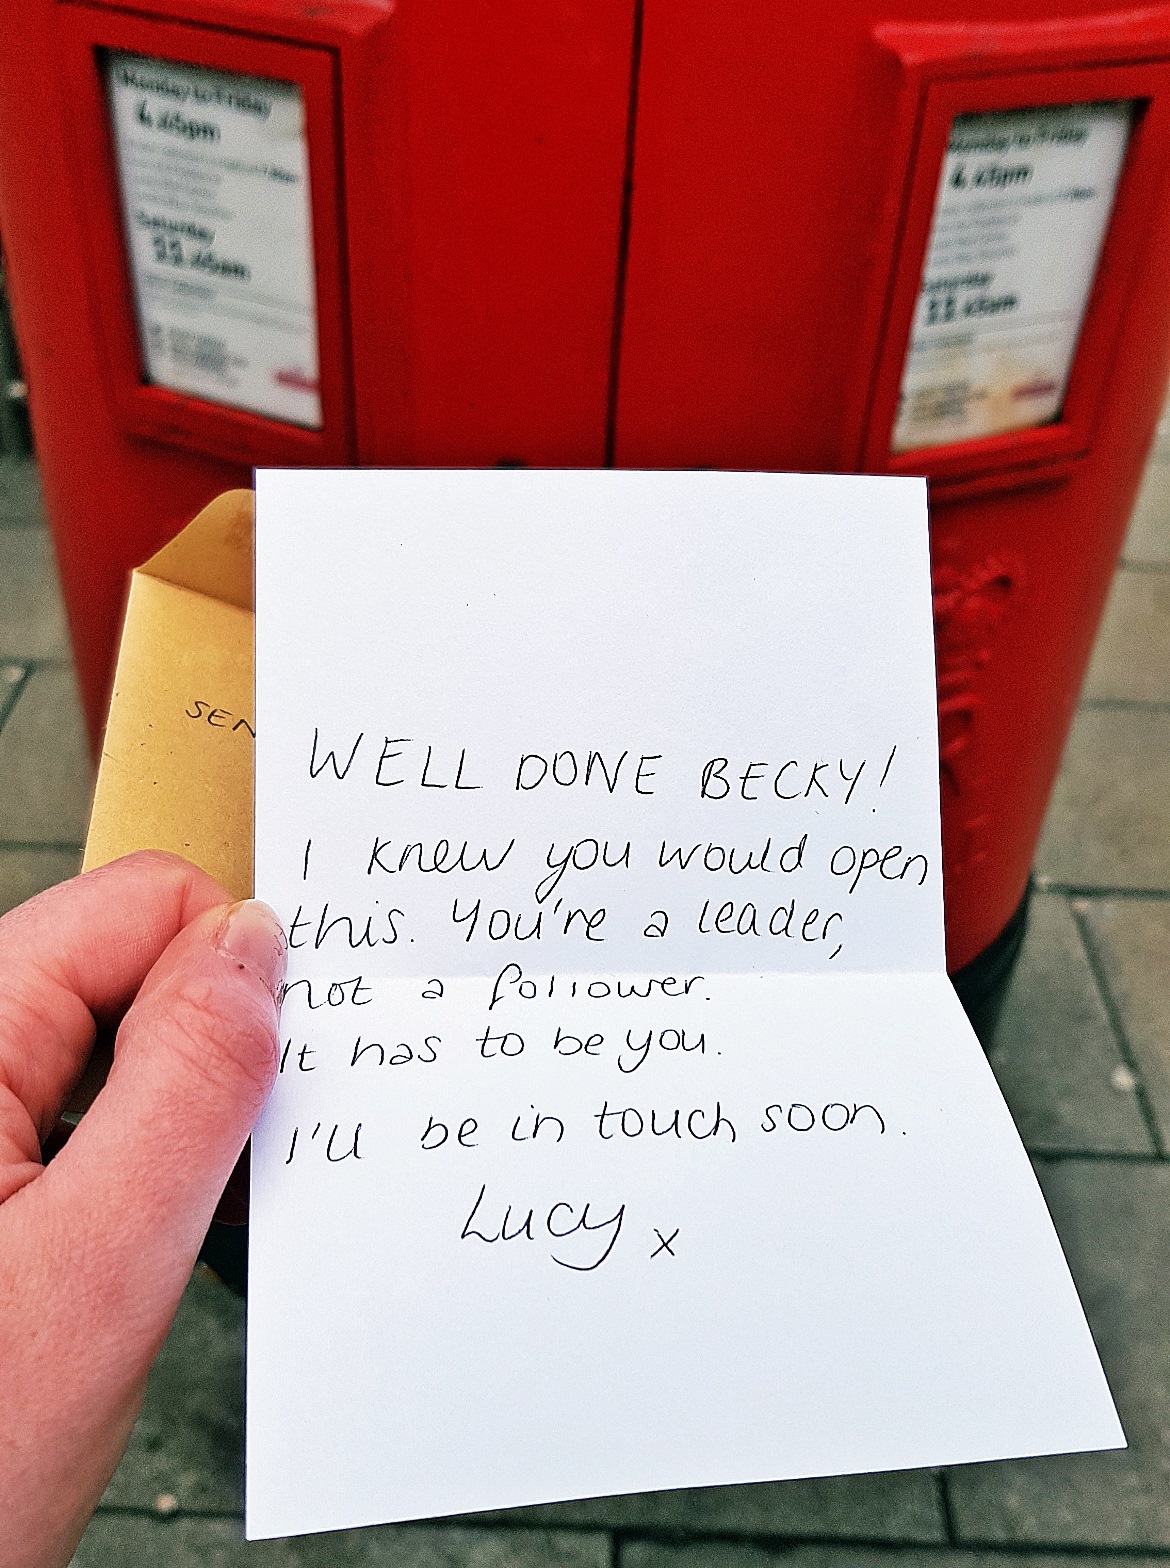 Monday to Friday
4.45pm
Saturday
11.45am
Monday to Friday
4.45pm
Saturday
11.45am
SEN
WELL DONE BECKY!
I knew you would open
this. You're a leader,
not a follower.
It has to be you.
I'll be in touch soon.
Lucy x